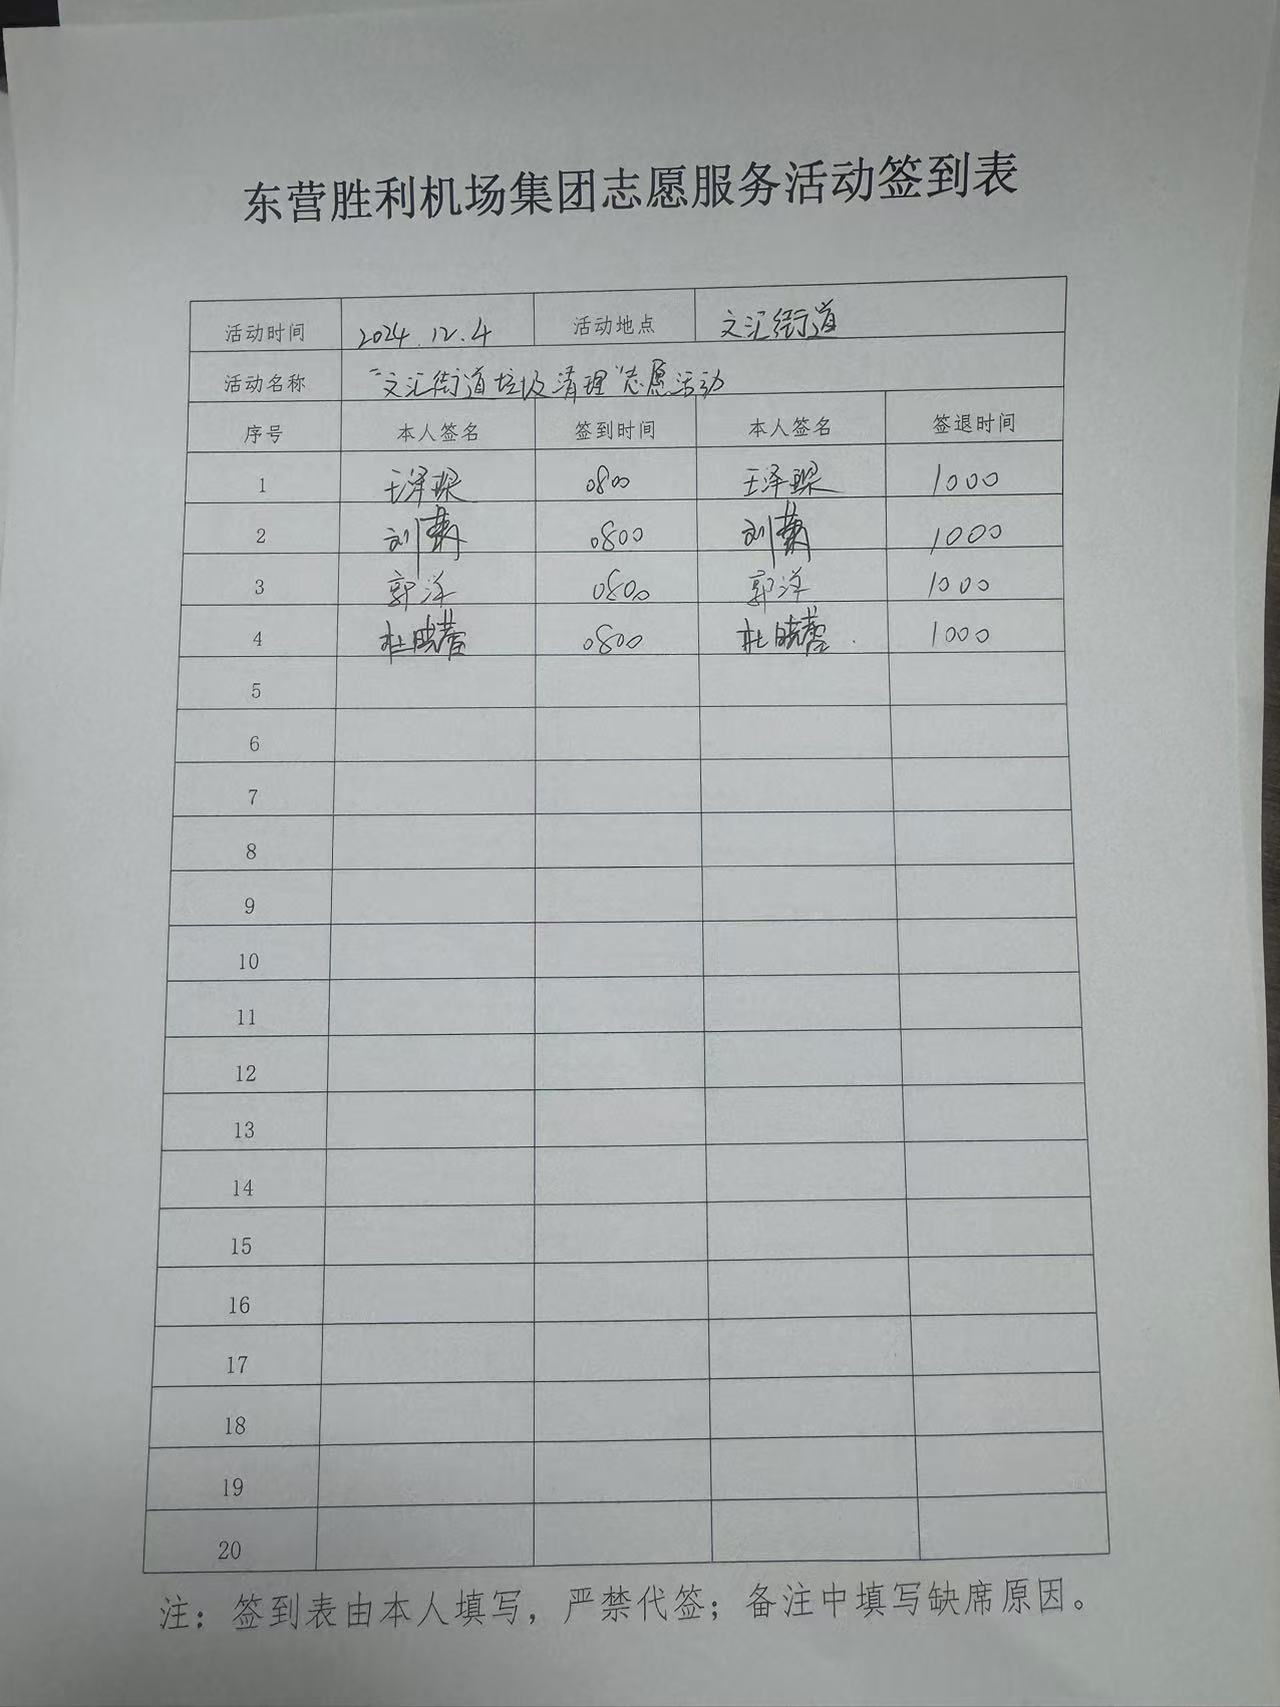 东营胜利机场集团志愿服务活动签到表
活动时间 2024.12.4 活动地点 文汇街道
活动名称 “文汇街道垃圾清理”志愿活动
序号 本人签名 签到时间 本人签名 签退时间
1 王泽琛 0800 王泽琛 1000
2 刘 0800 刘 1000
3 郭洋 0800 郭洋 1000
4 杜晓蕾 0800 杜晓蕾 1000
5
6
7
8
9
10
11
12
13
14
15
16
17
18
19
20
注：签到表由本人填写，严禁代签；备注中填写缺席原因。